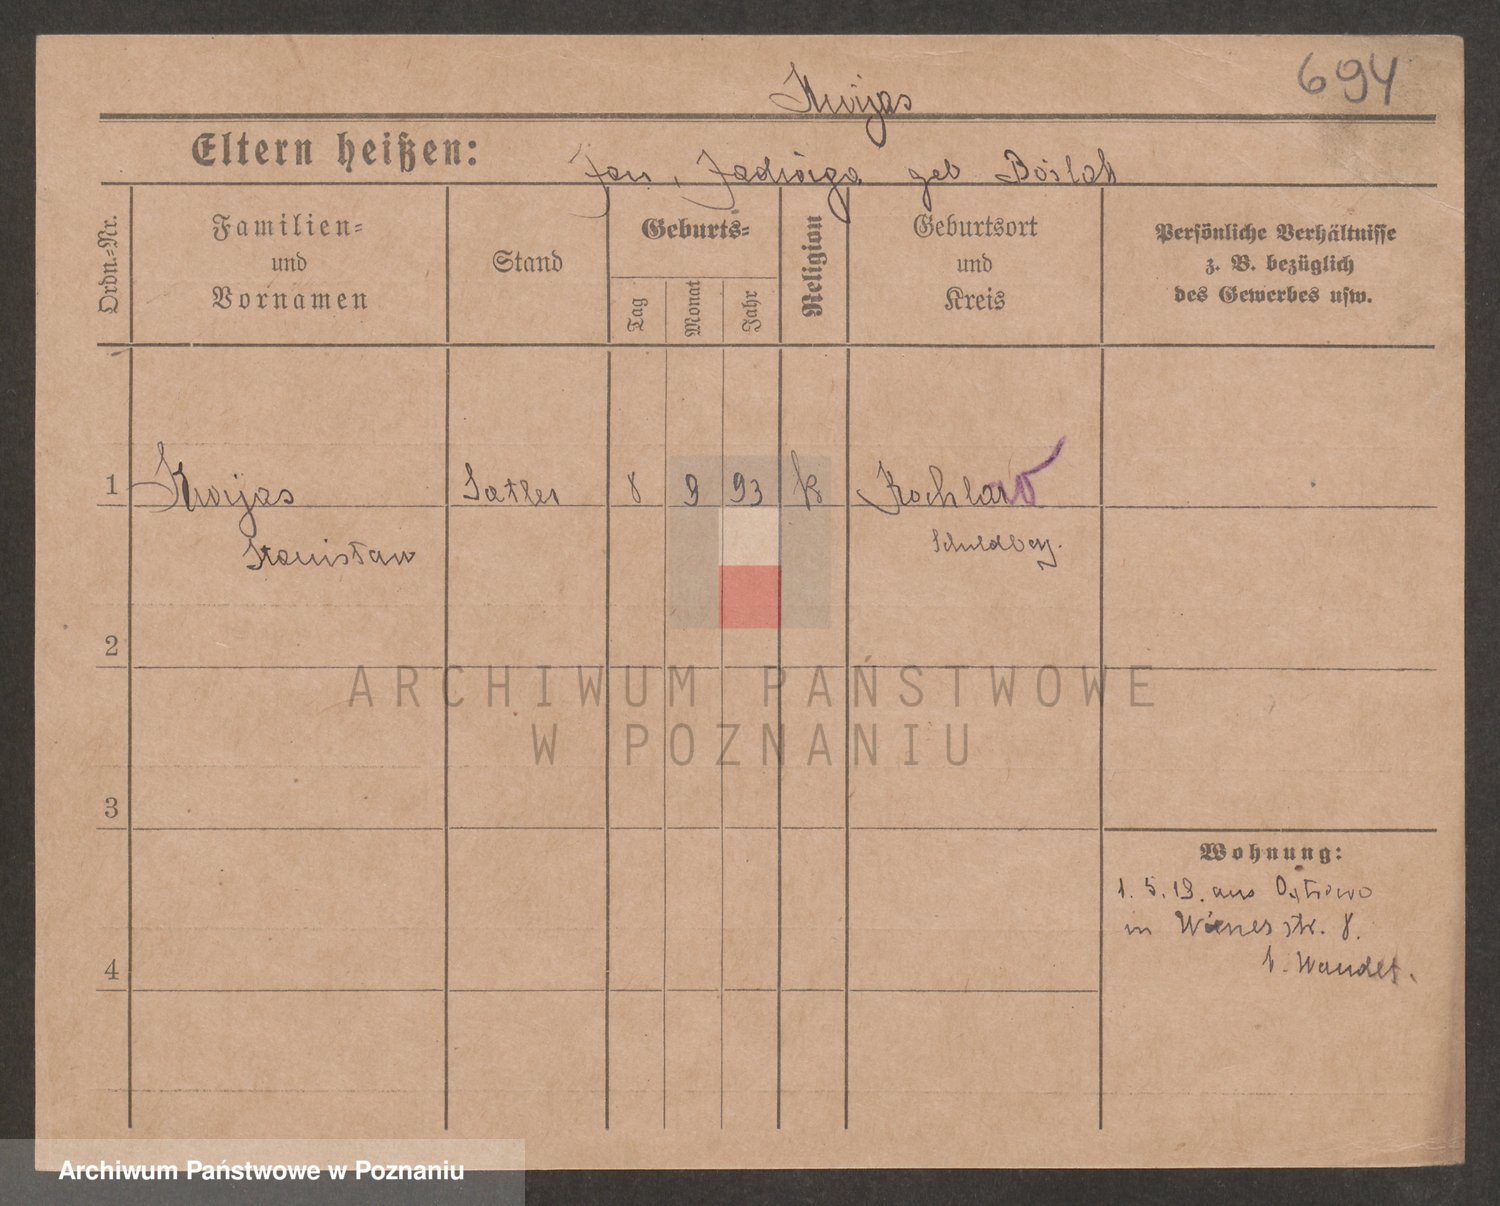 694
Kwijas
Eltern heißen: Jan, Jadwiga geb Boślak
Ordn.-Nr.
Familien- und Vornamen
Stand
Geburts-
Tag
Monat
Jahr
Religion
Geburtsort und Kreis
Persönliche Verhältnisse
z. B. bezüglich
des Gewerbes usw.
1 Kwijas Satler 8 9 93 k Kochlow
Stanisław Schildberg.
2
ARCHIWUM PAŃSTWOWE
W POZNANIU
3
Wohnung:
1. 5. 19. aus Ostrowo
in Wienerstr. 8.
4
Archiwum Państwowe w Poznaniu